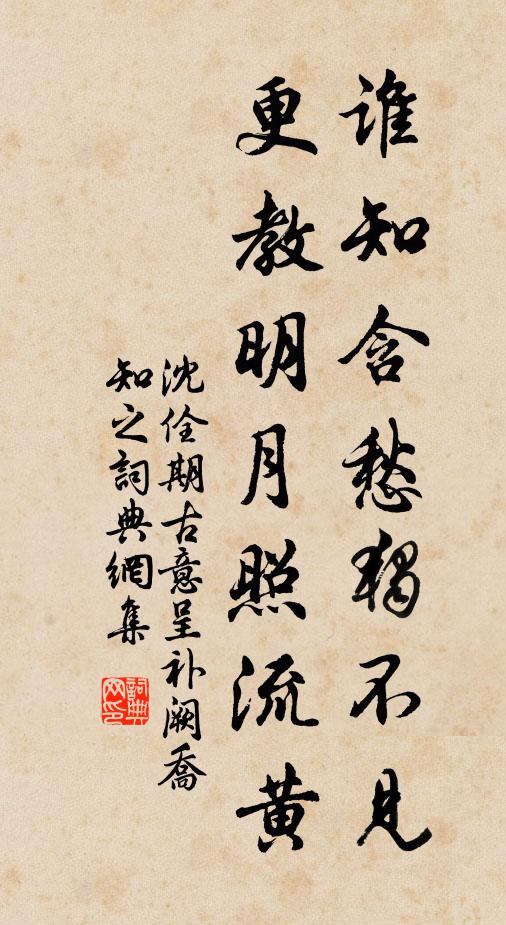 谁知含愁獨不見
更教明月照流黄
沈佺期古意呈补阙喬
知之詞典網集
詞典
网印